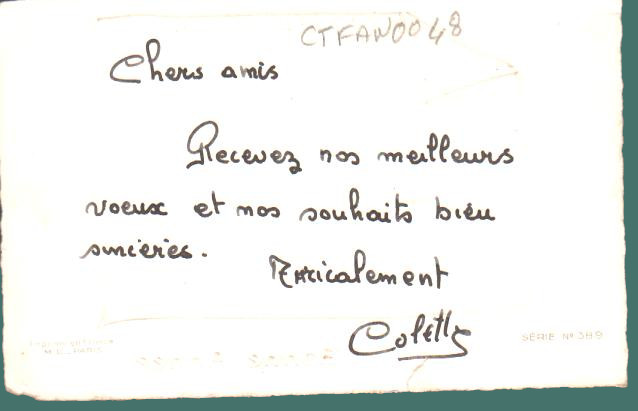 CTFAN0048
Chers amis
Recevez nos meilleurs
voeux et nos souhaits bien
sincères.
Amicalement
Colette
M.D. PARIS
SÉRIE N° 389